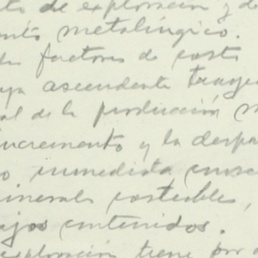 de exploracion y de
metalúrgico.
factores de costo
ascendente traye
al de la producción m
incremento y la despa
o inmediata
minerales costeables,
bajos contenidos.
exploración tiene por